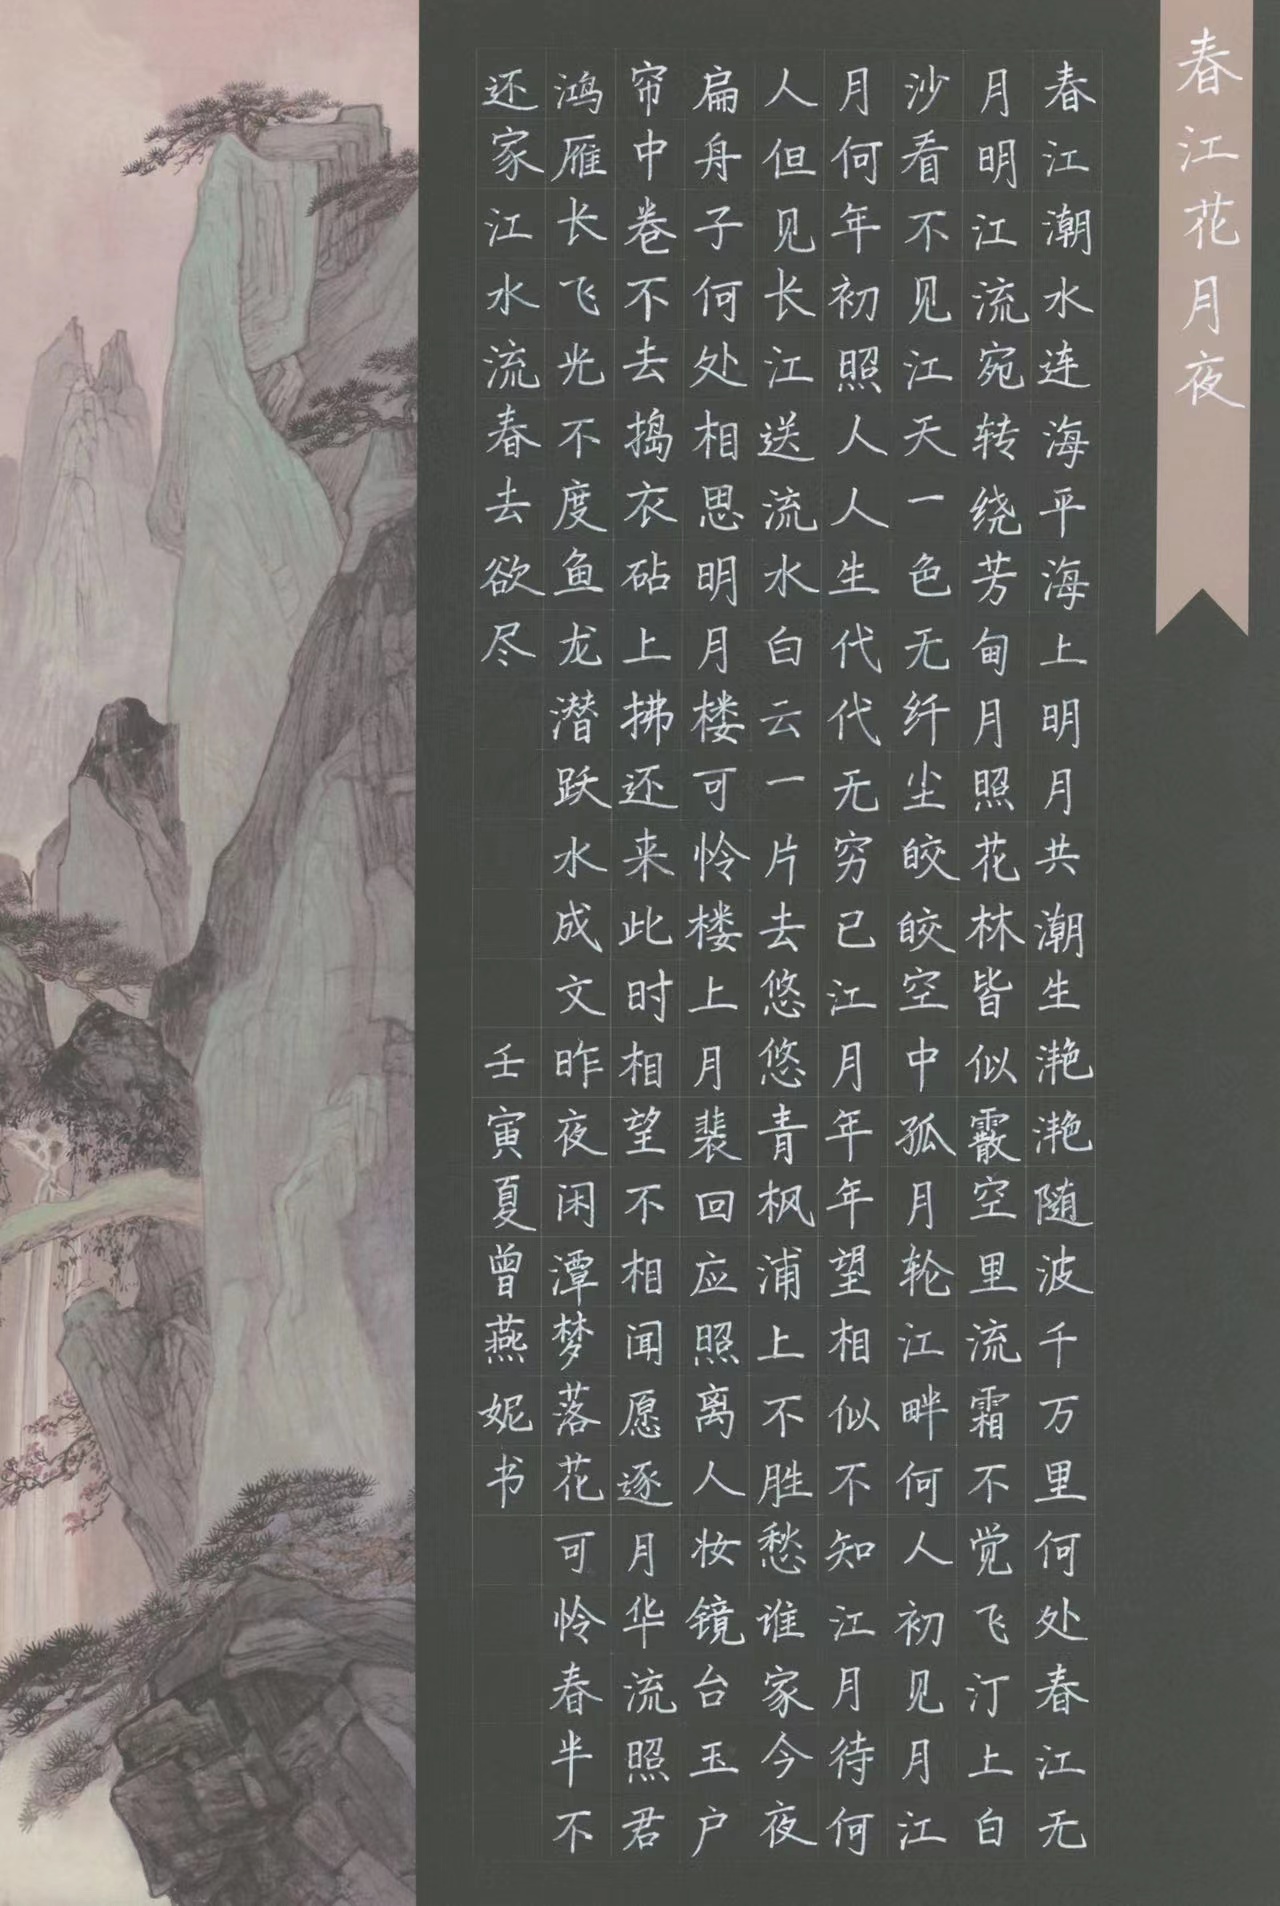 春江花月夜
春江潮水连海平海上明月共潮生滟滟随波千万里何处春江无
月明江流宛转绕芳甸月照花林皆似霰空里流霜不觉飞汀上白
沙看不见江天一色无纤尘皎皎空中孤月轮江畔何人初见月江
月何年初照人人生代代无穷已江月年年望相似不知江月待何
人但见长江送流水白云一片去悠悠青枫浦上不胜愁谁家今夜
扁舟子何处相思明月楼可怜楼上月裴回应照离人妆镜台玉户
帘中卷不去捣衣砧上拂还来此时相望不相闻愿逐月华流照君
鸿雁长飞光不度鱼龙潜跃水成文昨夜闲潭梦落花可怜春半不
还家江水流春去欲尽 壬寅夏曾燕妮书